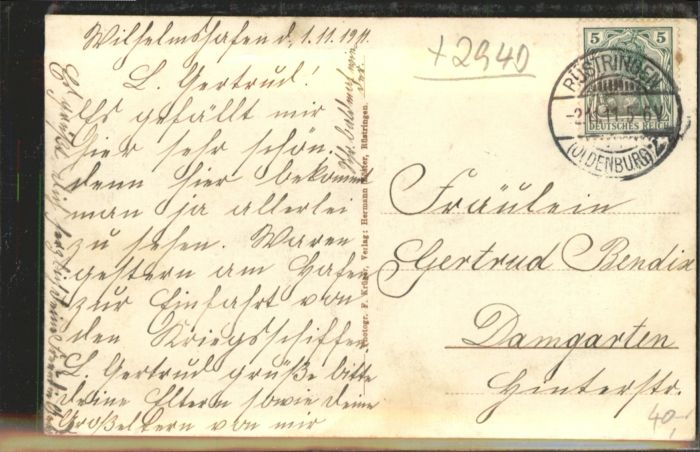 Wilhelmshafen d. 1.11.1911.
L. Gertrud!
Es gefällt mir
hier sehr schön.
denn hier bekommt
man ja allerlei
zu sehen. Waren
gestern am Hafen
zur Einfahrt von
den Kriegsschiffen
L. Gertrud grüße bitte
deine Eltern sowie deine
Großeltern von mir
Es grüßt
Photogr. F. Krüger, Verlag: Hermann Rüstringen.
+2940
5 5
DEUTSCHES REICH
RÜSTRINGEN
(OLDENBURG) 2
Fräulein
Gertrud Bendix
Damgarten
Hinterstr.
40,-